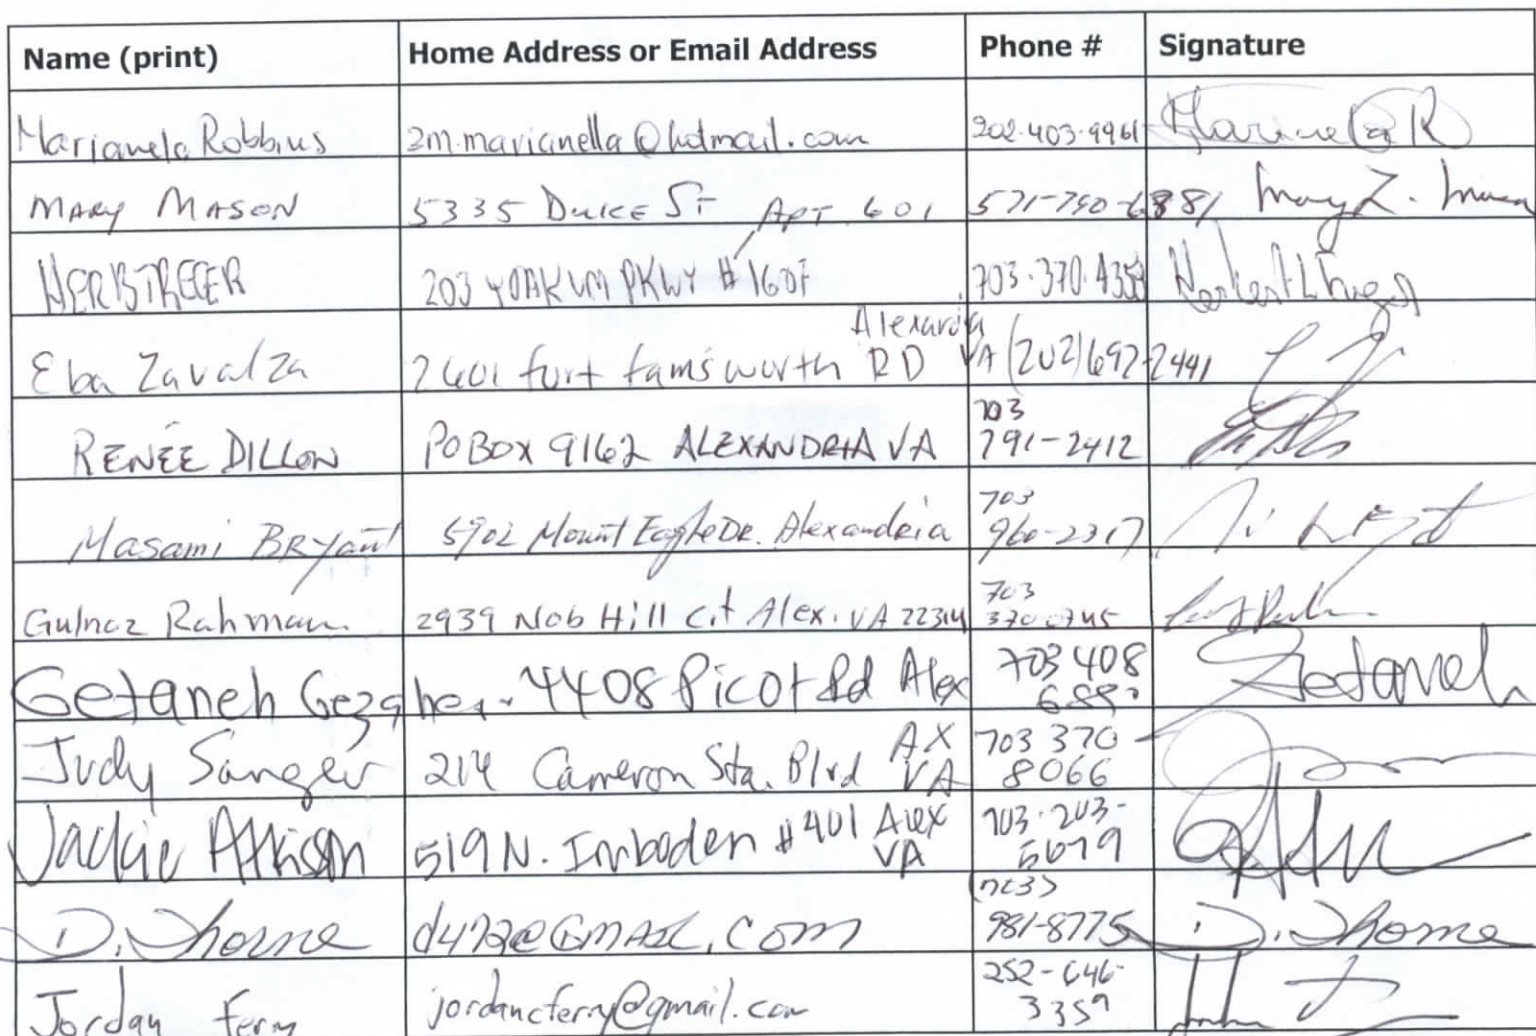 Name (print) Home Address or Email Address Phone # Signature
Marianela Robbins 2m.marianella@hotmail.com 202.403.9961 Marianela R
MARY MASON 5335 DUKE ST APT 601 571-790-6881 Mary Z. Mason
HERB TREGER 203 YOAKUM PKWY #1607 703.370.4353
Eba Zavalza 2601 furt famsworth RD Alexandria VA (202)692-2441
RENÉE DILLON PO BOX 9162 ALEXANDRIA VA 703 791-2412
Masami BRYant 5902 Mount Eagle DR. Alexandria 703 960-2317
Gulnaz Rahman 2939 Nob Hill Ct Alex. VA 22314 703 370 0745
Getaneh 4408 Picot Rd Alex 703 408 Getaneh
Judy Sanger 214 Cameron Sta. Blvd AX VA 703 370 8066
Jackie Atkison 519 N. Imboden #401 Alex VA 703-203-5679
D. Thorne d472@GMAIL.COM (703) 981-8775 D. Thorne
Jordan Ferry jordancferry@gmail.com 252-646-3359